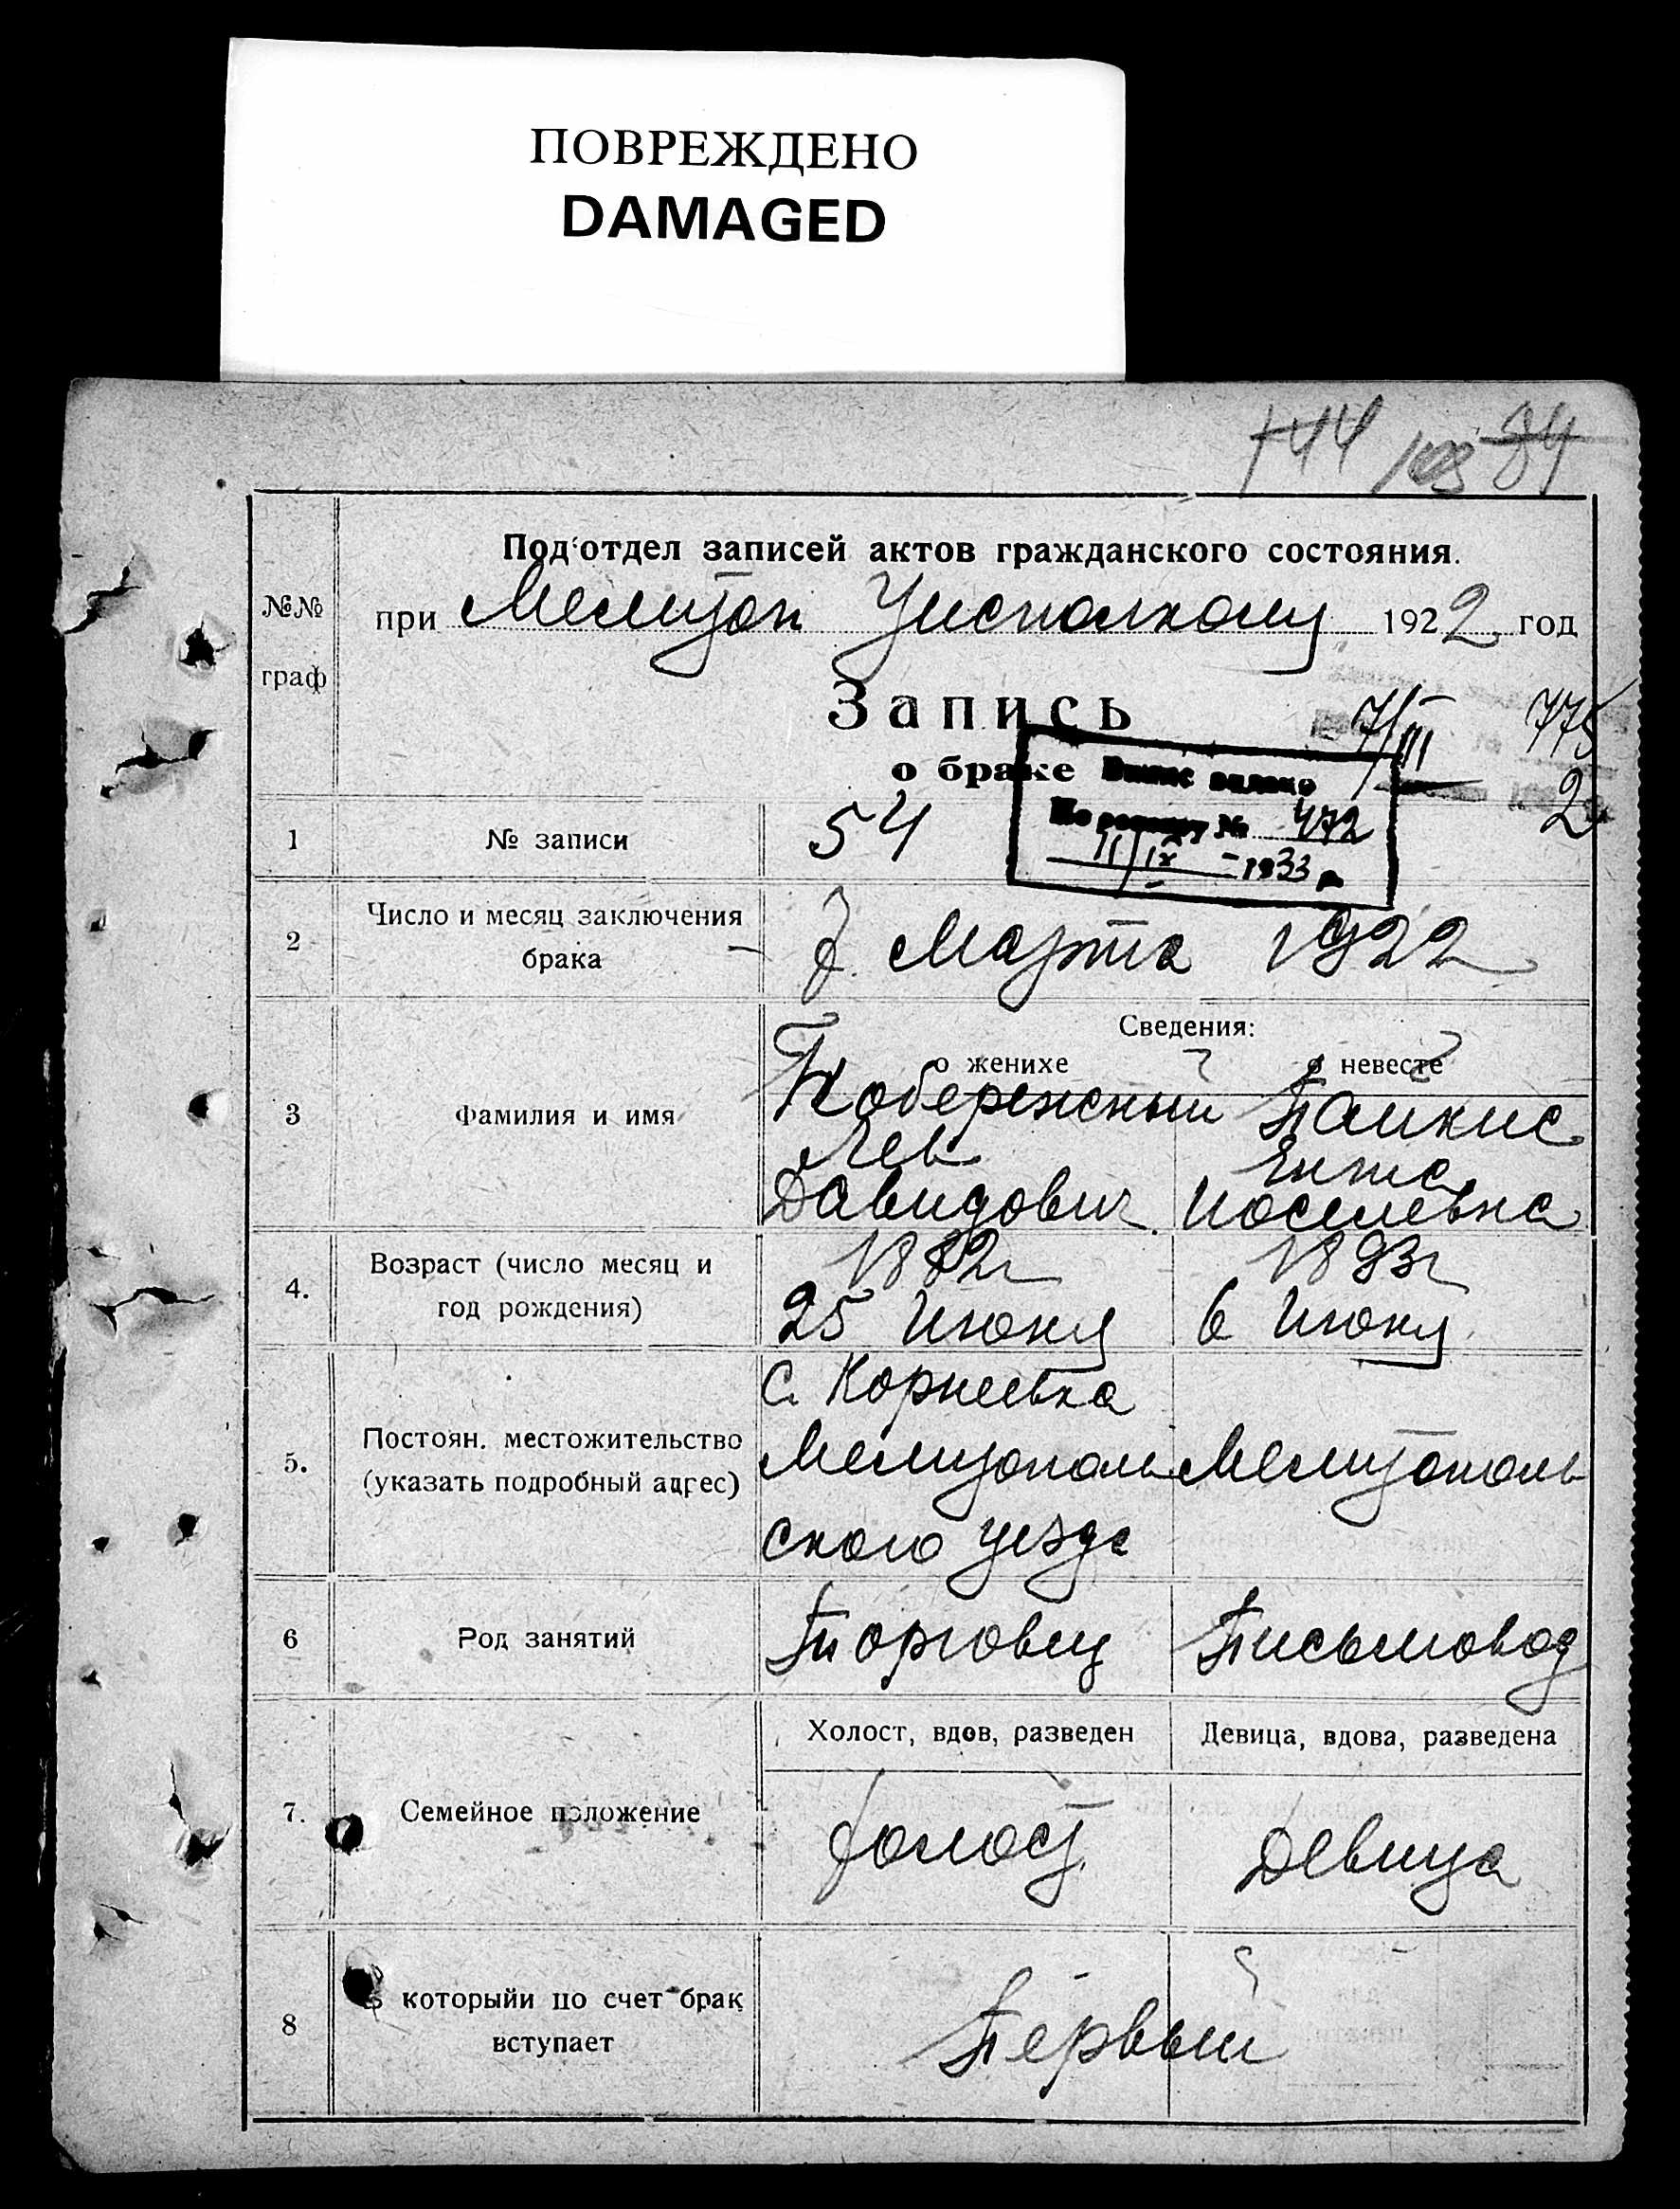 ПОВРЕЖДЕНО
DAMAGED
144 103 84
Под'отдел записей актов гражданского состояния.
№№
граф
при Мелитоп Уисполкому 1922 год
Запись
7/III 775
о браке
2
№ 472
11/IX - 1933 г
1 № записи 54
2 Число и месяц заключения
брака
7 Марта 1922
Сведения:
о женихе о невесте
3 Фамилия и имя
Кобережский Панкис
Лев
Давидович Иоселевна
4. Возраст (число месяц и
год рождения)
1882 г 1893 г
25 Июня 6 Июня
5. Постоян. местожительство
(указать подробный адрес)
С. Корнеевка
Мелитополь Мелитополь
ского уезда
6 Род занятий Торговец Письмовод
Холост, вдов, разведен Девица, вдова, разведена
7. Семейное положение холост Девица
8 В которыйи по счет брак
вступает
Первый